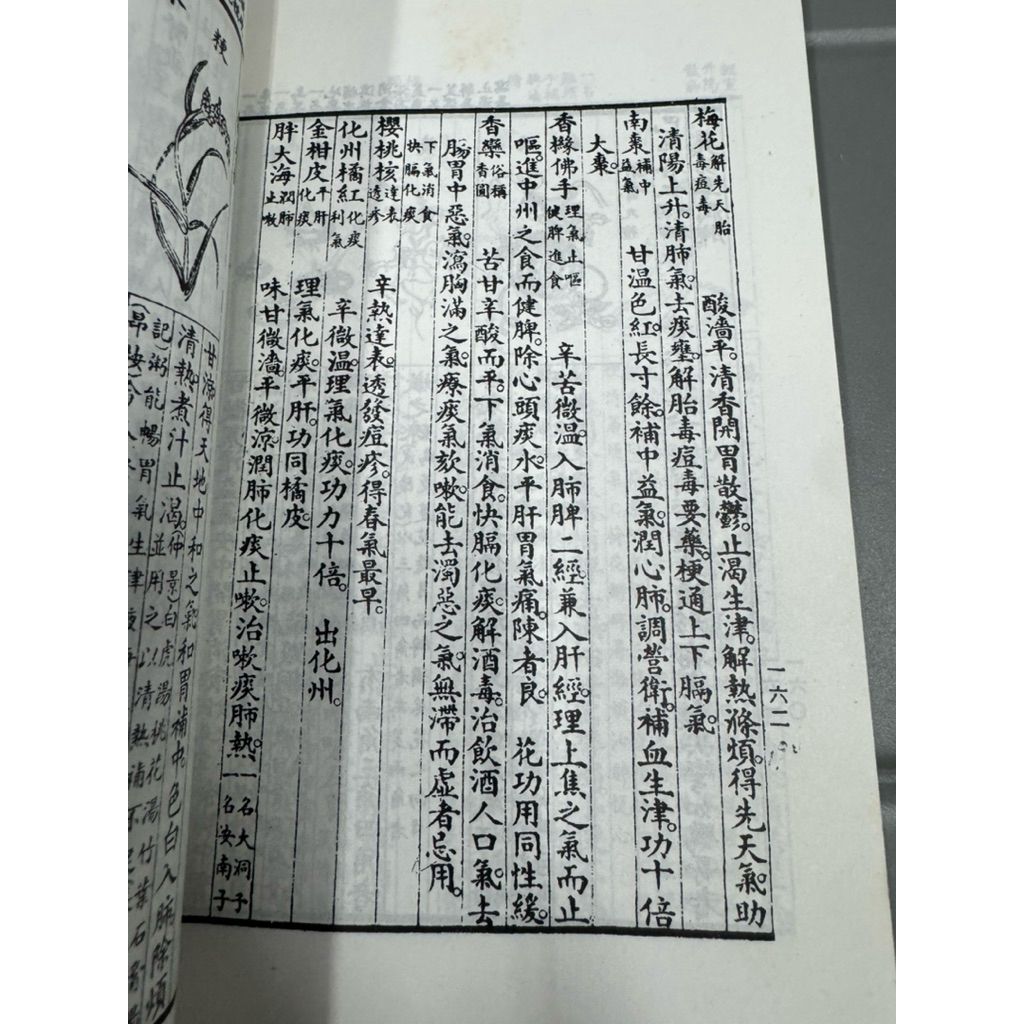 一六二
梅花解先天胎毒痘毒　酸濇平。清香開胃散鬱。止渴生津。解熱滌煩。得先天氣。助
清陽上升。清肺氣。去痰壅。解胎毒痘毒要藥。梗通上下膈氣。
南棗補中益氣　甘温色紅。長寸餘。補中益氣。潤心肺。調營衛。補血生津。功十倍
大棗。
香櫞佛手理氣止嘔健脾進食　辛苦微温。入肺脾二經。兼入肝經。理上焦之氣而止
嘔。進中州之食而健脾。除心頭痰水。平肝胃氣痛。陳者良　花功用同性緩。
香欒俗稱香圓　苦甘辛酸而平。下氣消食。快膈化痰。解酒毒。治飲酒人口氣。去
下氣消食快膈化痰　腸胃中惡氣。瀉胸滿之氣。療痰氣欬嗽。能去濁惡之氣。無滯而虛者忌用。
櫻桃核達表透疹　辛熱達表。透發痘疹。得春氣最早。
化州橘紅化痰利氣　辛微温。理氣化痰。功力十倍。　出化州。
金柑皮平肝化痰　理氣化痰。平肝。功同橘皮。
胖大海潤肺止嗽　味甘微濇。平微涼。潤肺化痰止嗽。治嗽痰肺熱。一名大洞子一名安南子
粳
甘涼得天地中和之氣和胃補中。色白入肺除煩
清熱煮汁止渴。（仲景）白虎湯桃花湯竹葉石膏
記）粥能暢胃氣生津液